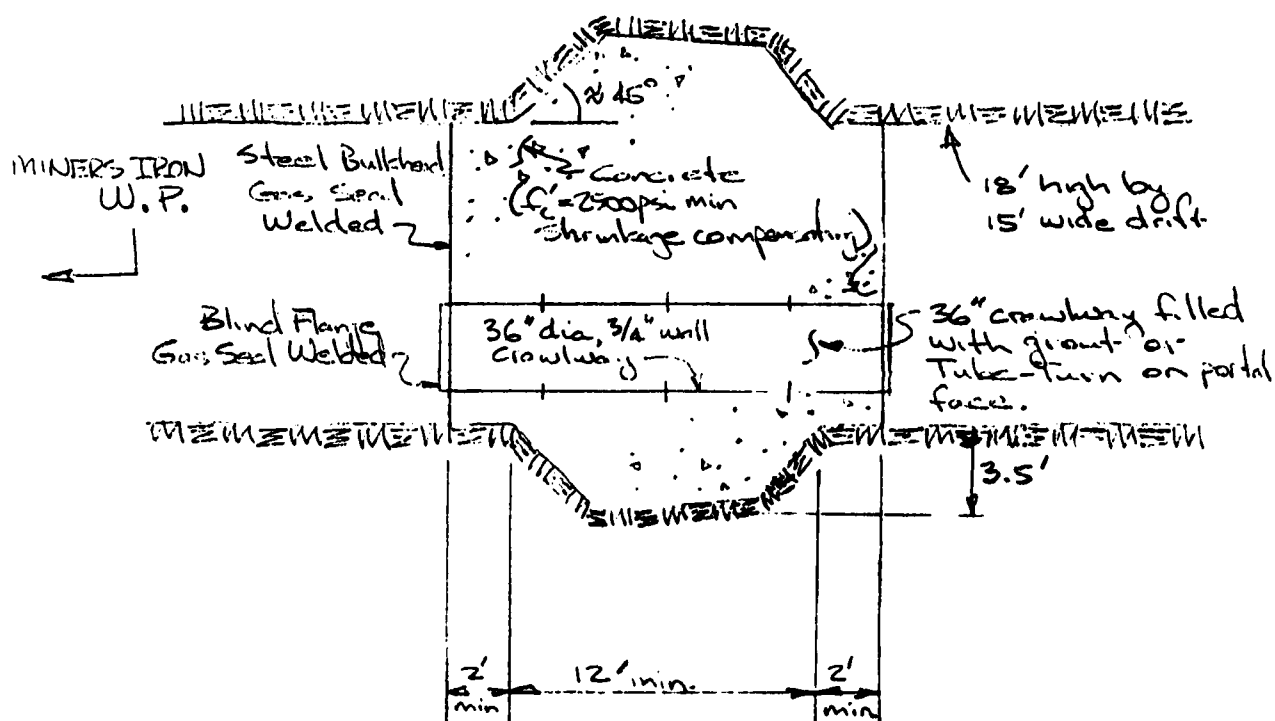 ≈ 45°
MINERS IRON
W.P.
Steel Bulkhead
Gas Seal
Welded
Concrete
(f'c = 2500psi min
Shrinkage compensating)
18' high by
15' wide drift
Blind Flange
Gas Seal Welded
36" dia, 3/4" wall
crawlway
36" crawlway filled
with grout or
Tube-Turn on portal
face.
3.5'
2'
min
12' min.
2'
min